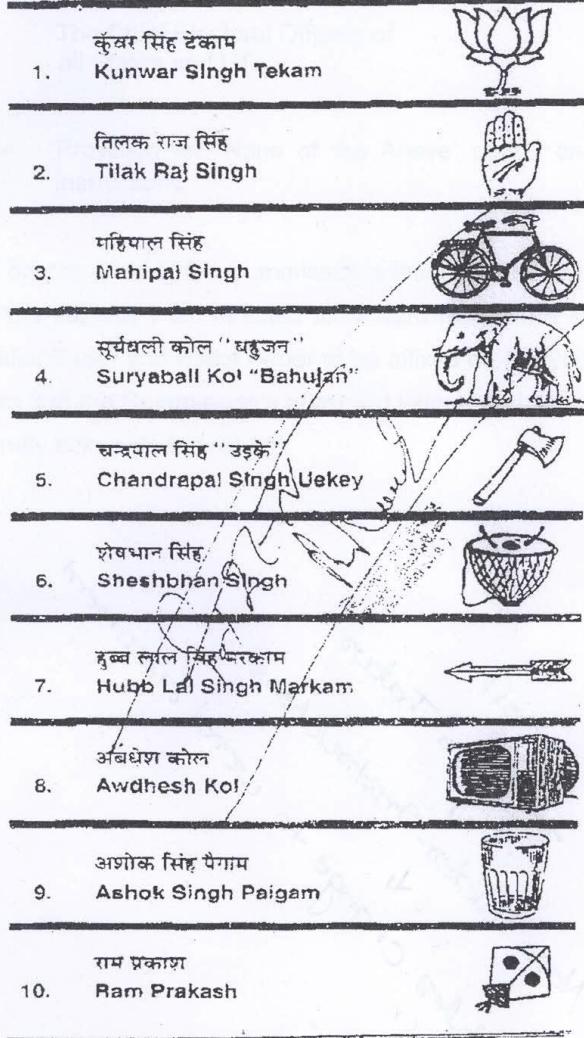 कुंवर सिंह टेकाम
1. Kunwar Singh Tekam
तिलक राज सिंह
2. Tilak Raj Singh
महिपाल सिंह
3. Mahipal Singh
सूर्यबली कोल "बहुजन"
4. Suryabali Kol "Bahujan"
चन्द्रपाल सिंह उइके
5. Chandrapal Singh Uekey
शेषभान सिंह
6. Sheshbhan Singh
हुब्ब लाल सिंह मरकाम
7. Hubb Lal Singh Markam
अवधेश कोल
8. Awdhesh Kol
अशोक सिंह पैगाम
9. Ashok Singh Paigam
राम प्रकाश
10. Ram Prakash